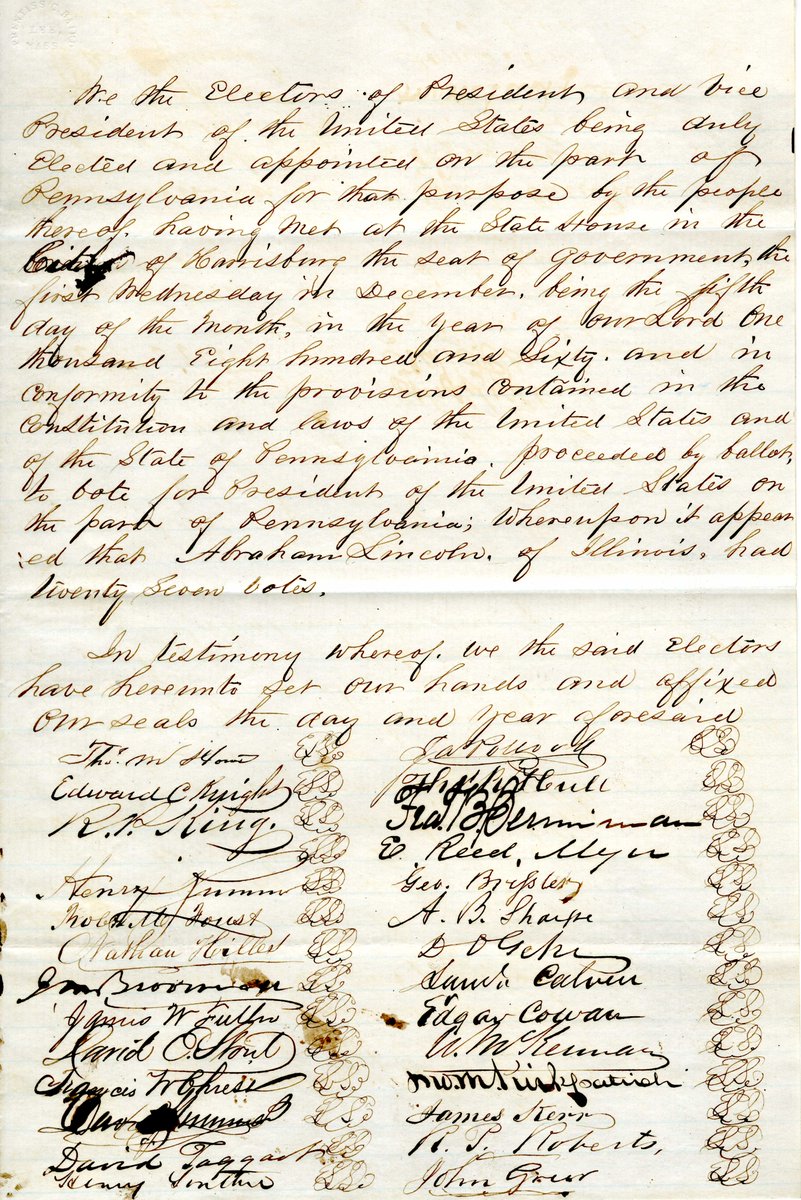 We the Electors of President and Vice
President of the United States being duly
Elected and appointed on the part of
Pennsylvania for that purpose by the people
thereof, having met at the State House in the
of Harrisburg the seat of Government, the
first Wednesday in December, being the fifth
day of the Month, in the Year of our Lord One
thousand Eight hundred and Sixty. and in
conformity to the provisions contained in the
Constitution and laws of the United States and
of the State of Pennsylvania. proceeded by ballot,
to vote for President of the United States on
the part of Pennsylvania; Whereupon it appear
ed that Abraham Lincoln, of Illinois, had
Twenty Seven votes.
In testimony whereof, we the said Electors
have hereunto set our hands and affixed
our seals the day and year aforesaid
Thos. M Howe
Edward C Knight
R. P. King.
Henry Bumm
Robt. M. Foust
Nathan Hilles
Jno Broomman
James W Fuller
David E. Stout
Francis W Christ
David Taggart
Jas Pollock
Ulysses Mercur
Geo. Bressler
A. B. Sharpe
D O Gehr
Samul Calvin
Edgar Cowan
W. McKennan
Jno. M. Kirkpatrick
James Kerr
R. P. Roberts,
John Greer